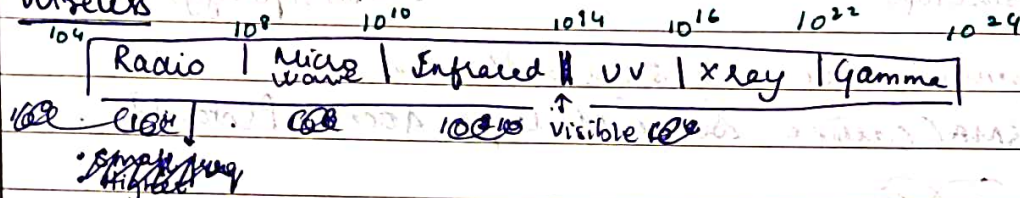 10⁴ 10⁸ 10¹⁰ 10¹⁴ 10¹⁶ 10²² 10²⁴
Radio | Micro wave | Infrared UV | X ray | Gamma
↑ visible